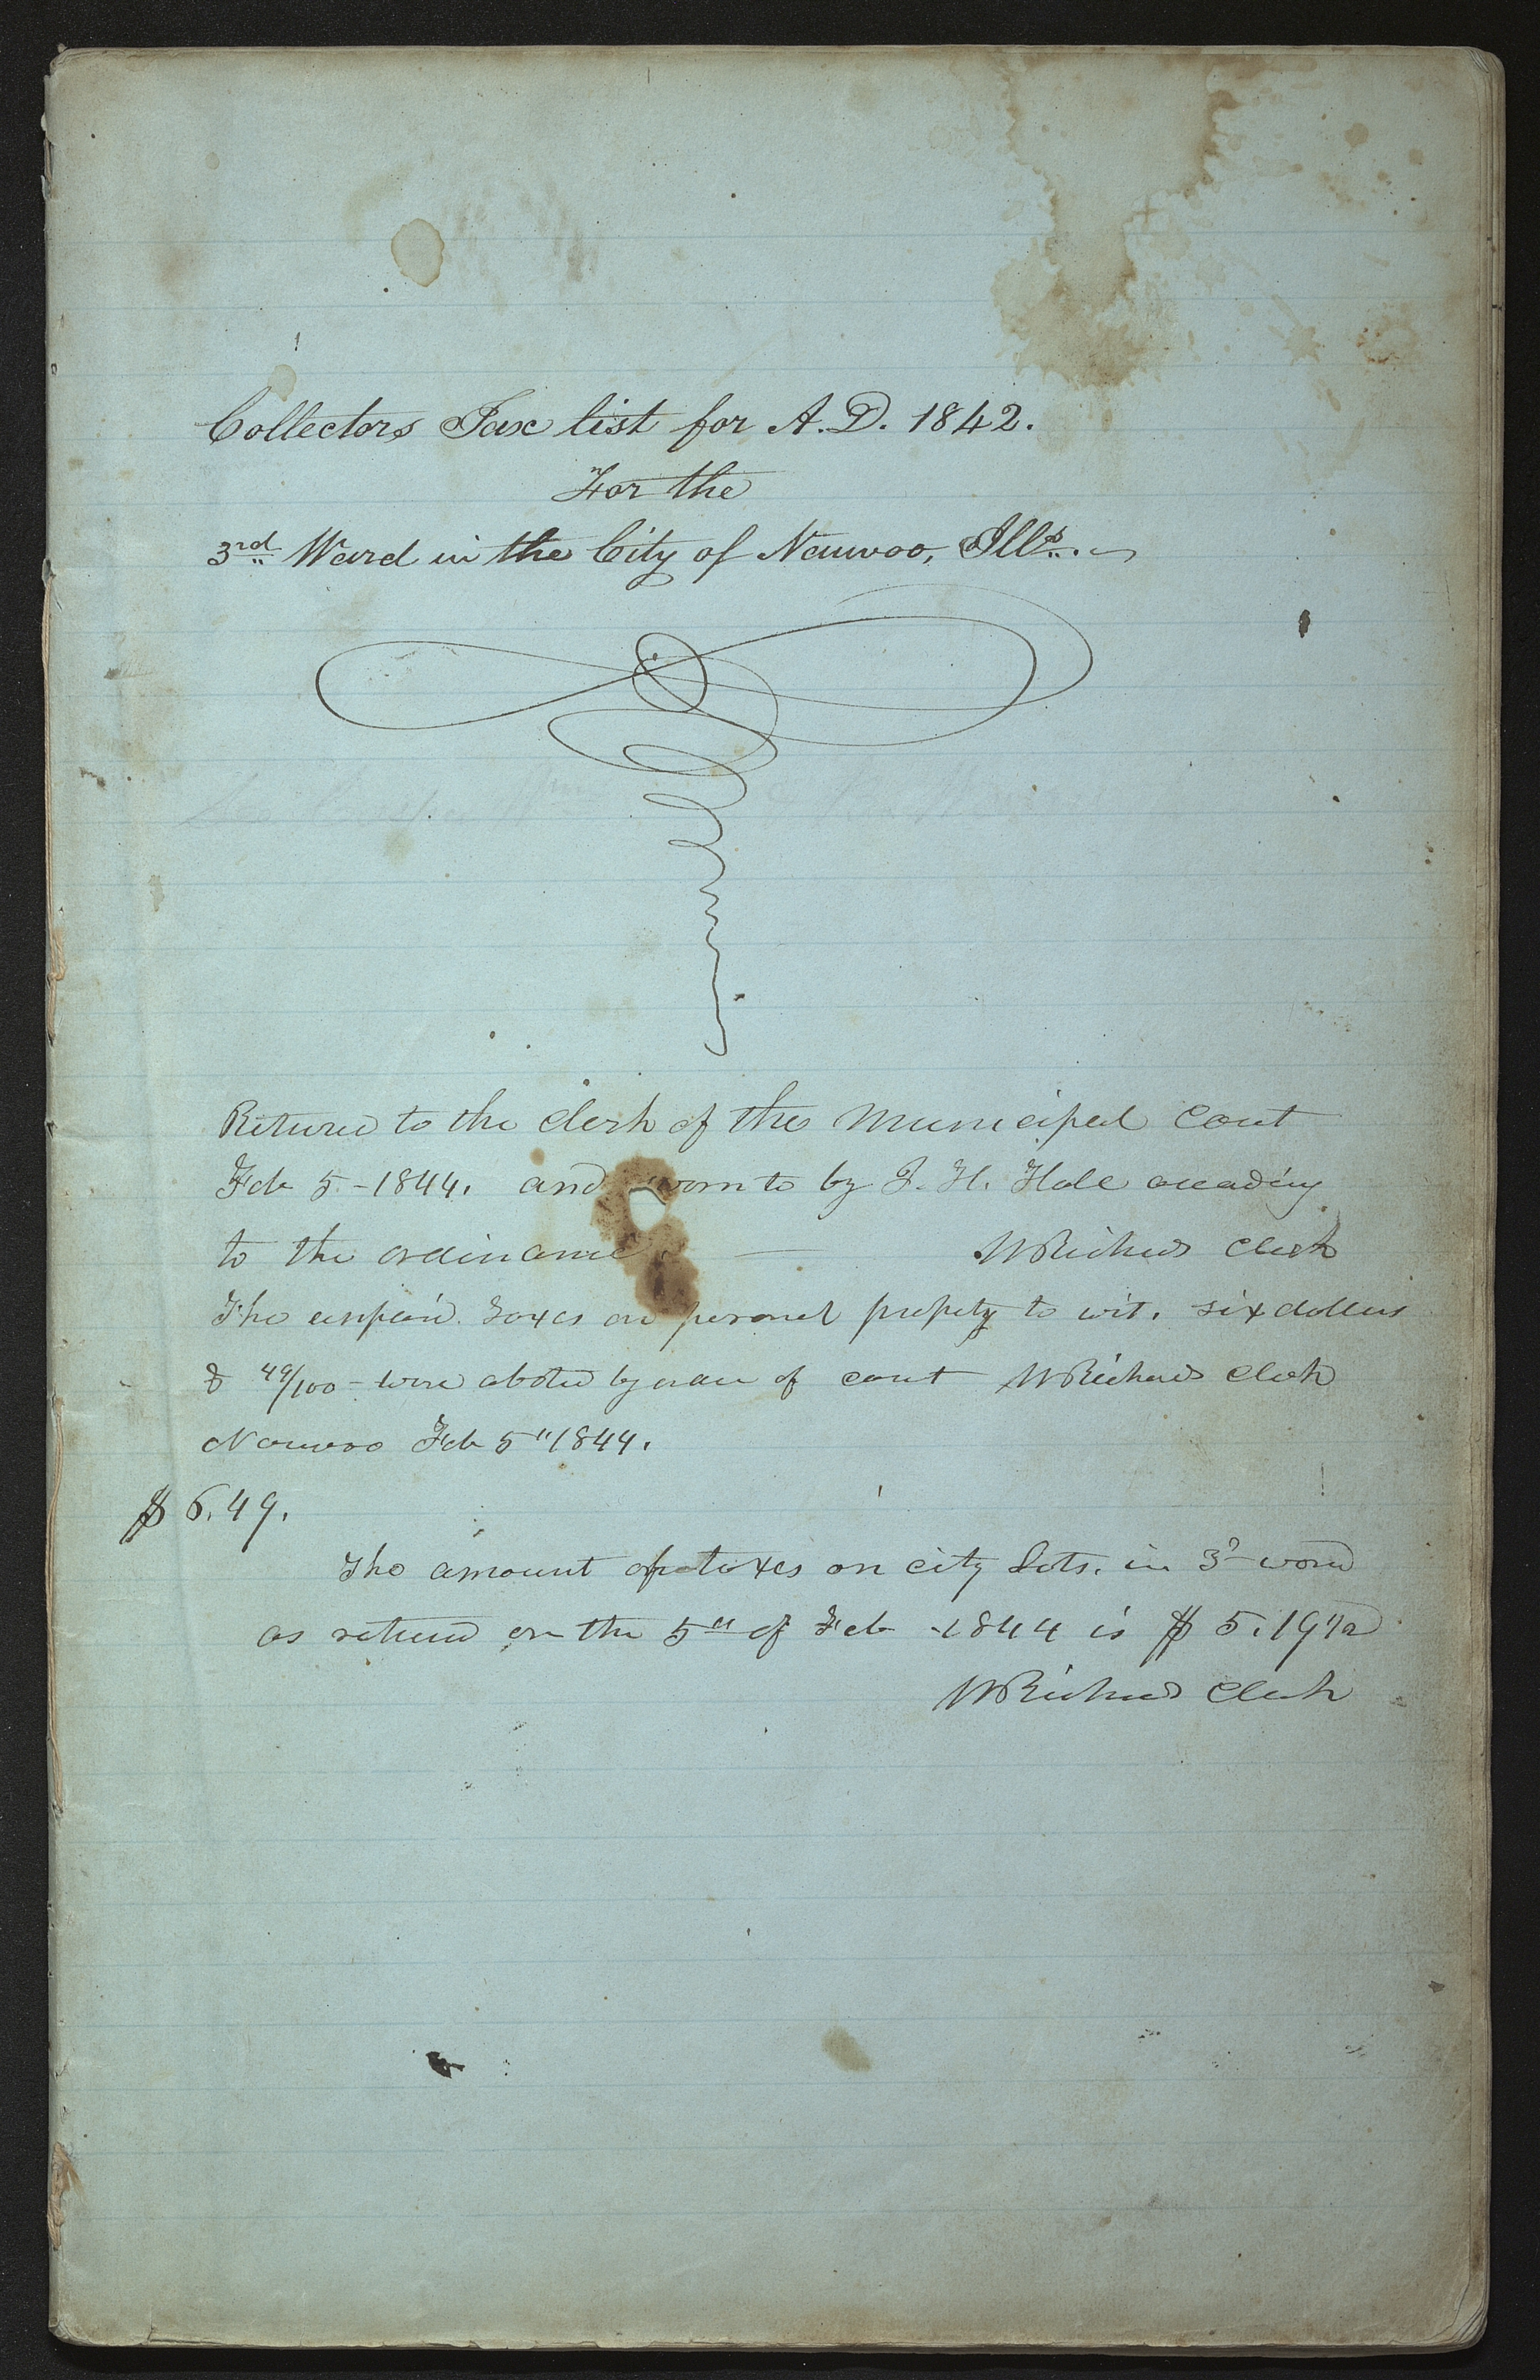 Collectors Tax list for A.D. 1842.
For the
3rd Ward in the City of Nauvoo, Ills.
Returned to the clerk of the Municipal Court
Feb 5 - 1844. and sworn to by J. H. Hale according
to the ordinance — WRichards Clerk
The unpaid taxes on personel propety to wit. six dollars
& 49/100 - were abated by order of court WRichards Clerk
Nauvoo Feb 5" 1844.
$ 6.49.
The amount of taxes on city Lots. in 3d ward
as returned on the 5th of Feb - 1844 is $ 5.19 1/2
WRichards Clerk